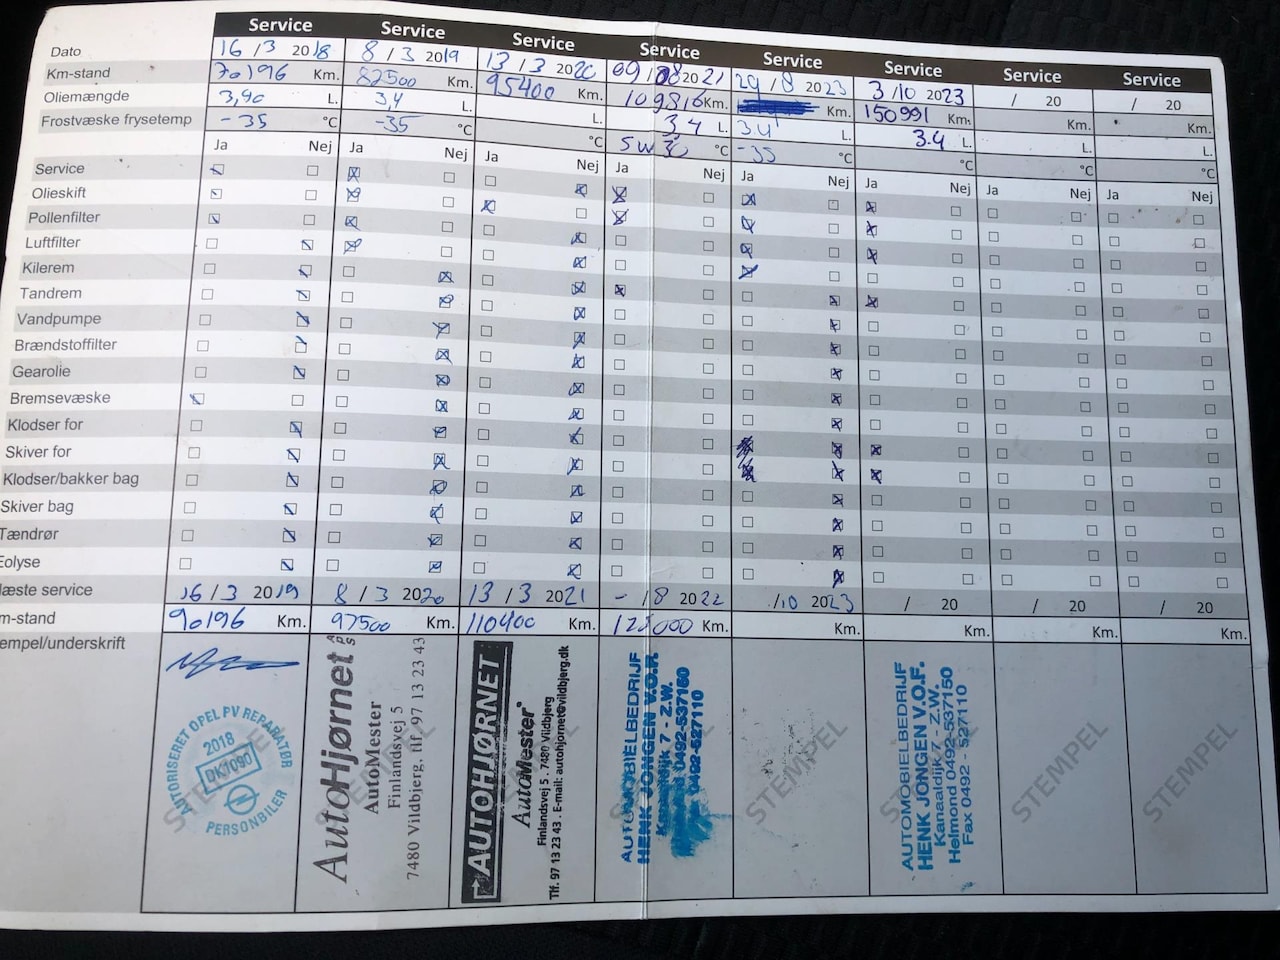 Service Service Service Service Service Service Service Service
Dato 16/3 2018 8/3 2019 13/3 2020 09/08 2021 29/8 2023 3/10 2023 / 20 / 20
Km-stand 70196 Km. 82500 Km. 95400 Km. 109816 Km. Km. 150991 Km. Km. Km.
Oliemængde 3,90 L. 3,4 L. L. 3.4 L. 3.4 L. 3.4 L. L. L.
Frostvæske frysetemp -35 °C -35 °C °C 5W30 °C -35 °C °C °C °C
Ja Nej Ja Nej Ja Nej Ja Nej Ja Nej Ja Nej Ja Nej Ja Nej
Service
Olieskift
Pollenfilter
Luftfilter
Kilerem
Tandrem
Vandpumpe
Brændstoffilter
Gearolie
Bremsevæske
Klodser for
Skiver for
Klodser/bakker bag
Skiver bag
Tændrør
Eolyse
æste service 16/3 2019 8/3 2020 13/3 2021 - /8 2022 /10 2023 / 20 / 20 / 20
m-stand 90196 Km. 97500 Km. 110400 Km. Km. Km. Km. Km. Km.
empel/underskrift
AUTORISERET OPEL PV REPARATØR
2018
DK1090
PERSONBILER
AutoHjørnet APS
AutoMester
Finlandsvej 5
7480 Vildbjerg, tlf. 97 13 23 43
AUTOHJØRNET
AutoMester
Finlandsvej 5 . 7480 Vildbjerg
Tlf. 97 13 23 43 . E-mail: autohjornet@vildbjerg.dk
AUTOMOBIELBEDRIJF
HENK JONGEN V.O.F.
Kanaaldijk 7 - Z.W.
0492-537150
0492-527110
STEMPEL
AUTOMOBIELBEDRIJF
HENK JONGEN V.O.F.
Kanaaldijk 7 - Z.W.
Helmond 0492-537150
Fax 0492 - 527110
STEMPEL
STEMPEL
STEMPEL